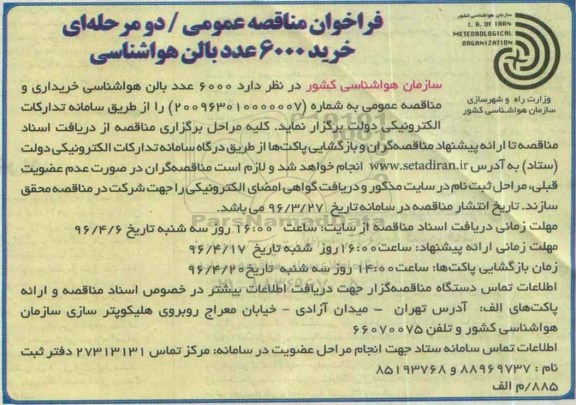 فراخوان مناقصه عمومی / دو مرحله‌ای
خرید ۶۰۰۰ عدد بالن هواشناسی
سازمان هواشناسی کشور
I. R. OF IRAN
METEOROLOGICAL
ORGANIZATION
وزارت راه و شهرسازی
سازمان هواشناسی کشور
سازمان هواشناسی کشور در نظر دارد ۶۰۰۰ عدد بالن هواشناسی خریداری و
مناقصه عمومی به شماره (۲۰۰۹۶۳۰۱۰۰۰۰۰۰۷) را از طریق سامانه تدارکات
الکترونیکی دولت برگزار نماید. کلیه مراحل برگزاری مناقصه از دریافت اسناد
مناقصه تا ارائه پیشنهاد مناقصه‌گران و بازگشایی پاکت‌ها از طریق درگاه سامانه تدارکات الکترونیکی دولت
(ستاد) به آدرس www.setadiran.ir انجام خواهد شد و لازم است مناقصه‌گران در صورت عدم عضویت
قبلی، مراحل ثبت نام در سایت مذکور و دریافت گواهی امضای الکترونیکی را جهت شرکت در مناقصه محقق
سازند. تاریخ انتشار مناقصه در سامانه تاریخ ۹۶/۳/۲۷ می باشد.
مهلت زمانی دریافت اسناد مناقصه از سایت: ساعت ۱۶:۰۰ روز سه شنبه تاریخ ۹۶/۴/۶
مهلت زمانی ارائه پیشنهاد: ساعت ۱۶:۰۰ روز شنبه تاریخ ۹۶/۴/۱۷
زمان بازگشایی پاکت‌ها: ساعت ۱۴:۰۰ روز سه شنبه تاریخ ۹۶/۴/۲۰
اطلاعات تماس دستگاه مناقصه‌گزار جهت دریافت اطلاعات بیشتر در خصوص اسناد مناقصه و ارائه
پاکت‌های الف: آدرس تهران - میدان آزادی - خیابان معراج روبروی هلیکوپتر سازی سازمان
هواشناسی کشور و تلفن ۶۶۰۷۰۰۷۵
اطلاعات تماس سامانه ستاد جهت انجام مراحل عضویت در سامانه: مرکز تماس ۲۷۳۱۳۱۳۱ دفتر ثبت
نام : ۸۸۹۶۹۷۳۷ و ۸۵۱۹۳۷۶۸
۸۸۵/م الف